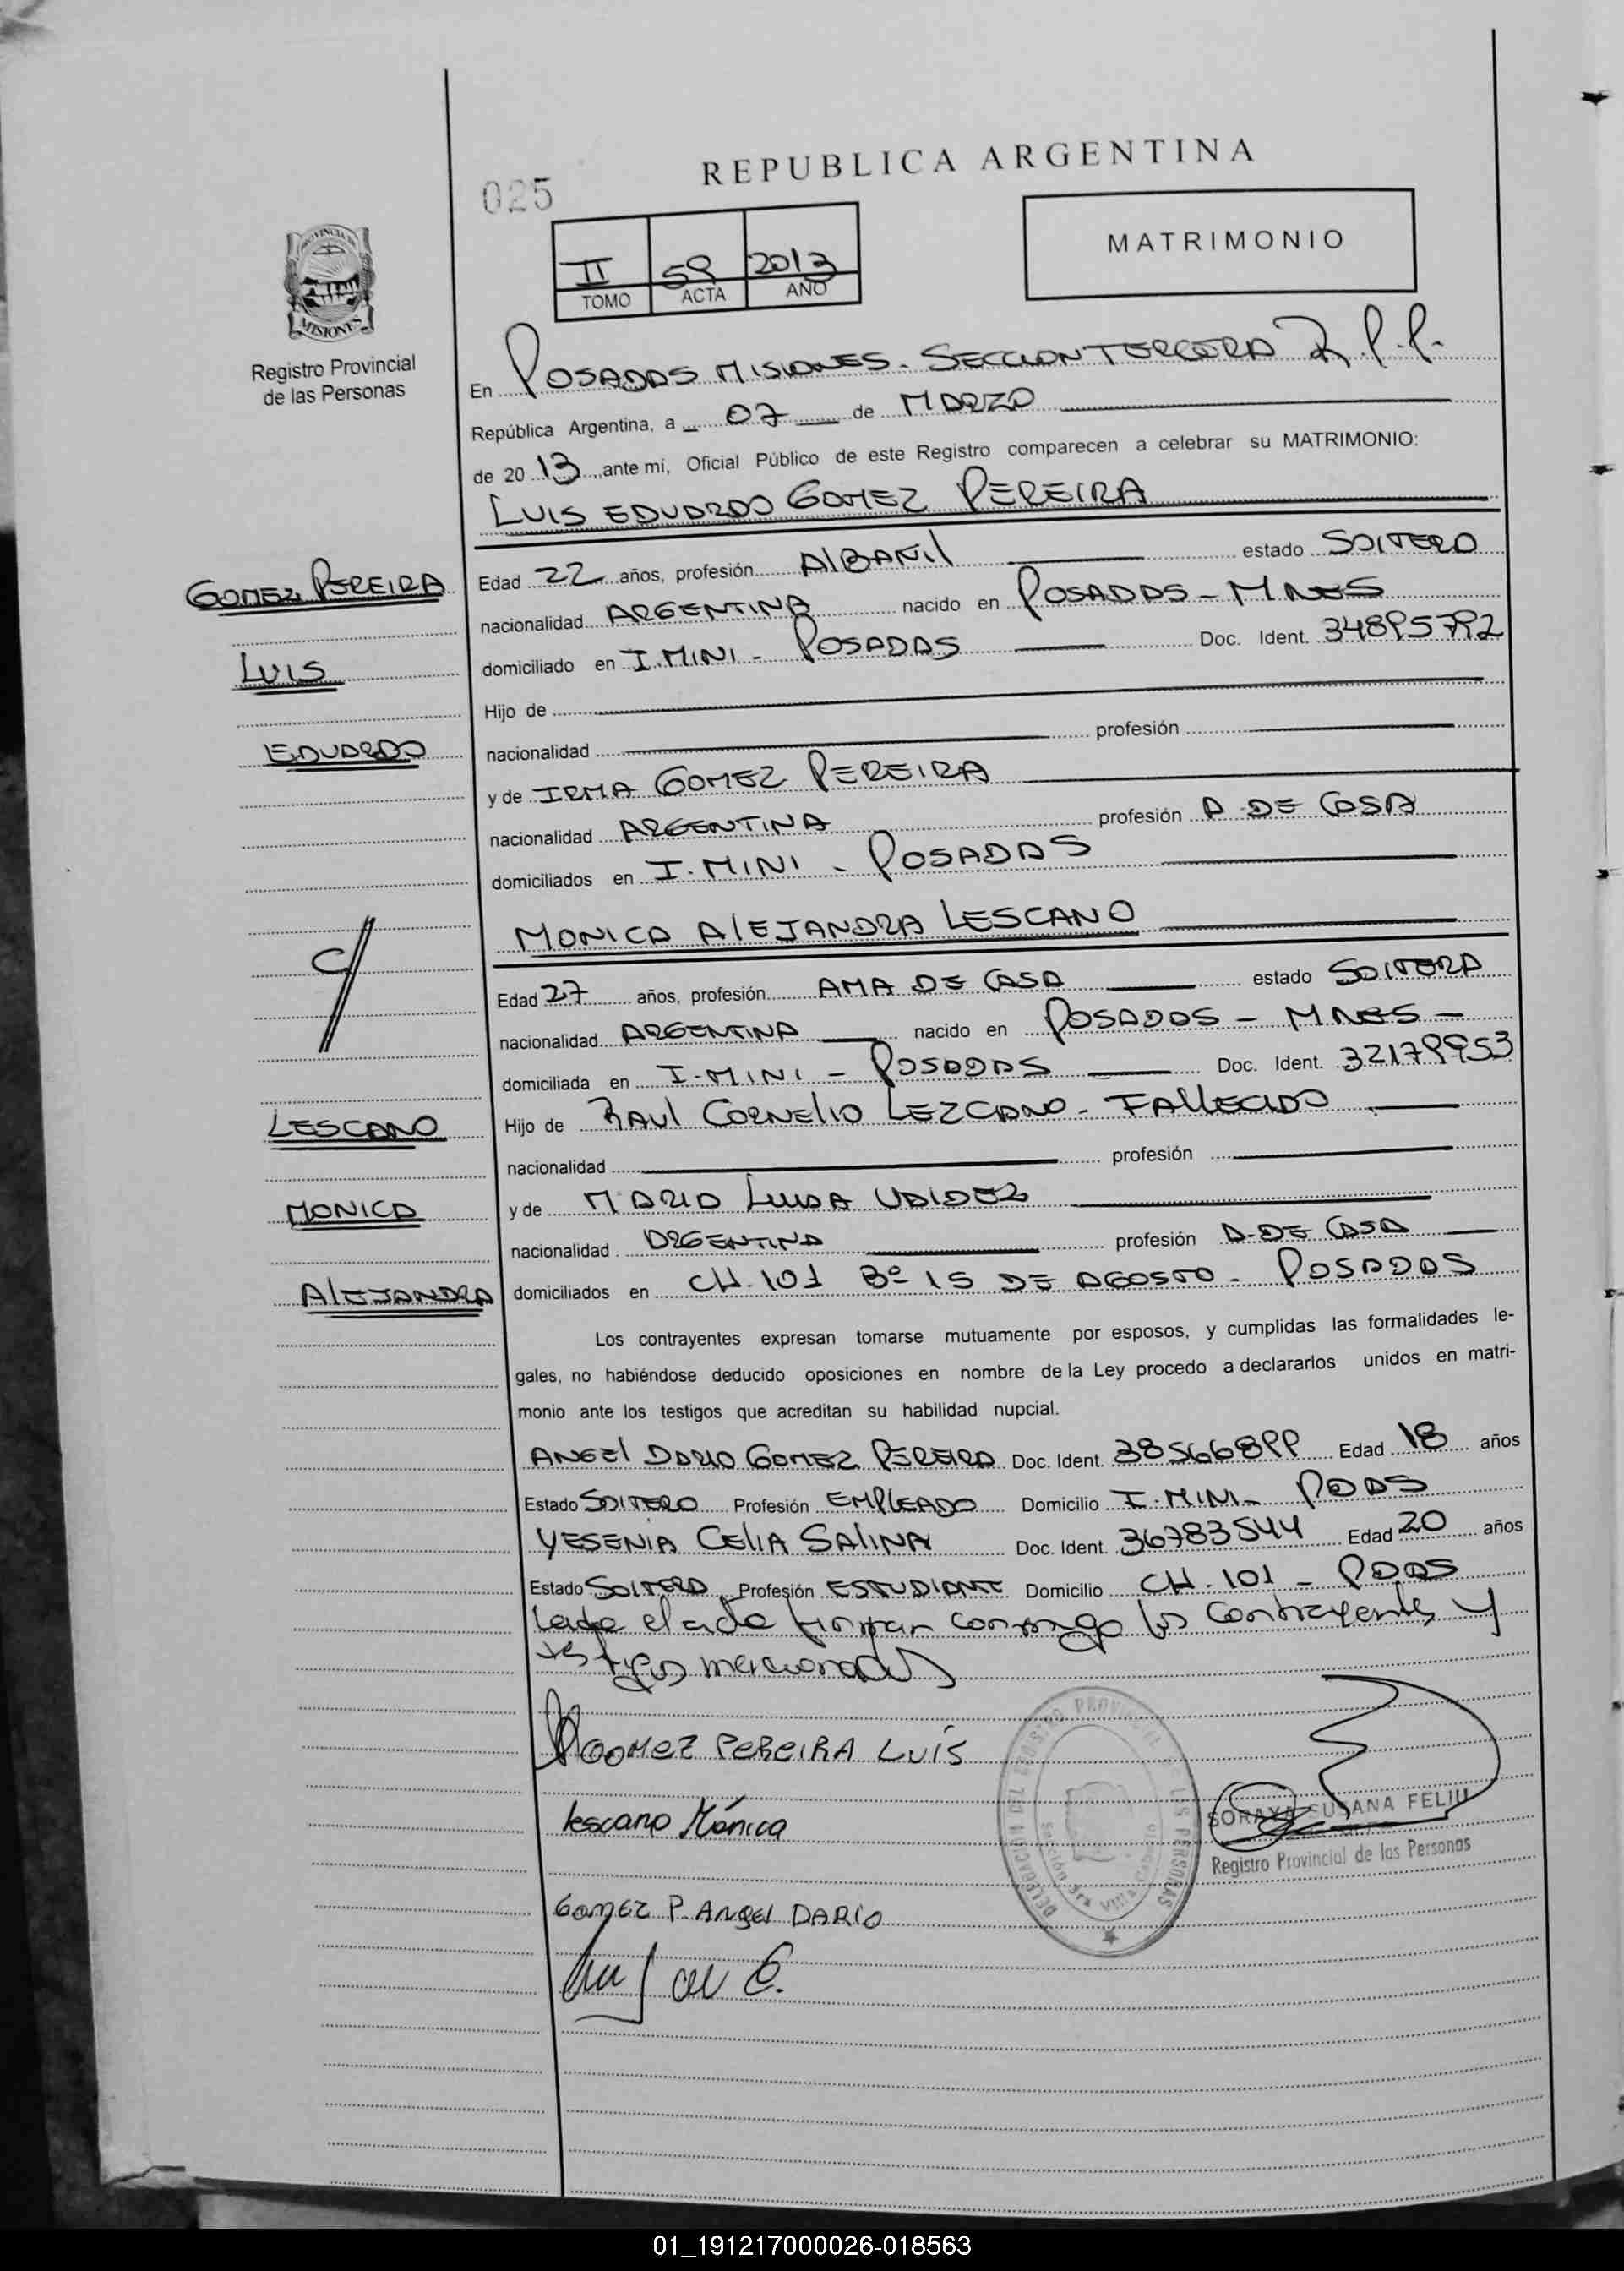 REPUBLICA ARGENTINA
025
MATRIMONIO
II 59 2013
TOMO ACTA AÑO
PROVINCIA DE
MISIONES
Registro Provincial
de las Personas
En POSADAS MISIONES. SECCION TERCERA R.P.P.
República Argentina, a 07 de MARZO
de 20 13 ,,ante mí, Oficial Público de este Registro comparecen a celebrar su MATRIMONIO:
LUIS EDUARDO GOMEZ PEREIRA
GOMEZ PEREIRA
LUIS
EDUARDO
Edad 22 años, profesión ALBAÑIL estado SOLTERO
nacionalidad ARGENTINA nacido en POSADAS - MNES
domiciliado en I.MINI - POSADAS Doc. Ident. 34895792
Hijo de
nacionalidad profesión
y de IRMA GOMEZ PEREIRA
nacionalidad ARGENTINA profesión A. DE CASA
domiciliados en I. MINI - POSADAS
MONICA ALEJANDRA LESCANO
C/
Edad 27 años, profesión AMA DE CASA estado SOLTERA
nacionalidad ARGENTINA nacido en POSADAS - MNES -
domiciliada en I-MINI - POSADAS Doc. Ident. 32179953
LESCANO
MONICA
ALEJANDRA
Hijo de RAUL CORNELIO LEZCANO - FALLECIDO
nacionalidad profesión
y de MARIA LUISA VALDEZ
nacionalidad ARGENTINA profesión A-DE CASA
domiciliados en CH. 101 Bº 15 DE AGOSTO - POSADAS
Los contrayentes expresan tomarse mutuamente por esposos, y cumplidas las formalidades le-
gales, no habiéndose deducido oposiciones en nombre de la Ley procedo a declararlos unidos en matri-
monio ante los testigos que acreditan su habilidad nupcial.
ANGEL DARIO GOMEZ PEREIRA Doc. Ident. 38566899 Edad 18 años
Estado SOLTERO Profesión EMPLEADO Domicilio I.MINI - PDAS
YESENIA CELIA SALINA Doc. Ident. 36783544 Edad 20 años
Estado SOLTERA Profesión ESTUDIANTE Domicilio CH. 101 - PDAS
Leida el acta firman conmigo los contrayentes y
testigos mencionados
GOMEZ PEREIRA LUIS
lescano Mónica
GOMEZ P. ANGEL DARIO
DELEGACION DEL REGISTRO PROVINCIAL DE LAS PERSONAS
Sección 3ra Villa Cabello
SORAYA SUSANA FELIU
Registro Provincial de las Personas
01_191217000026-018563